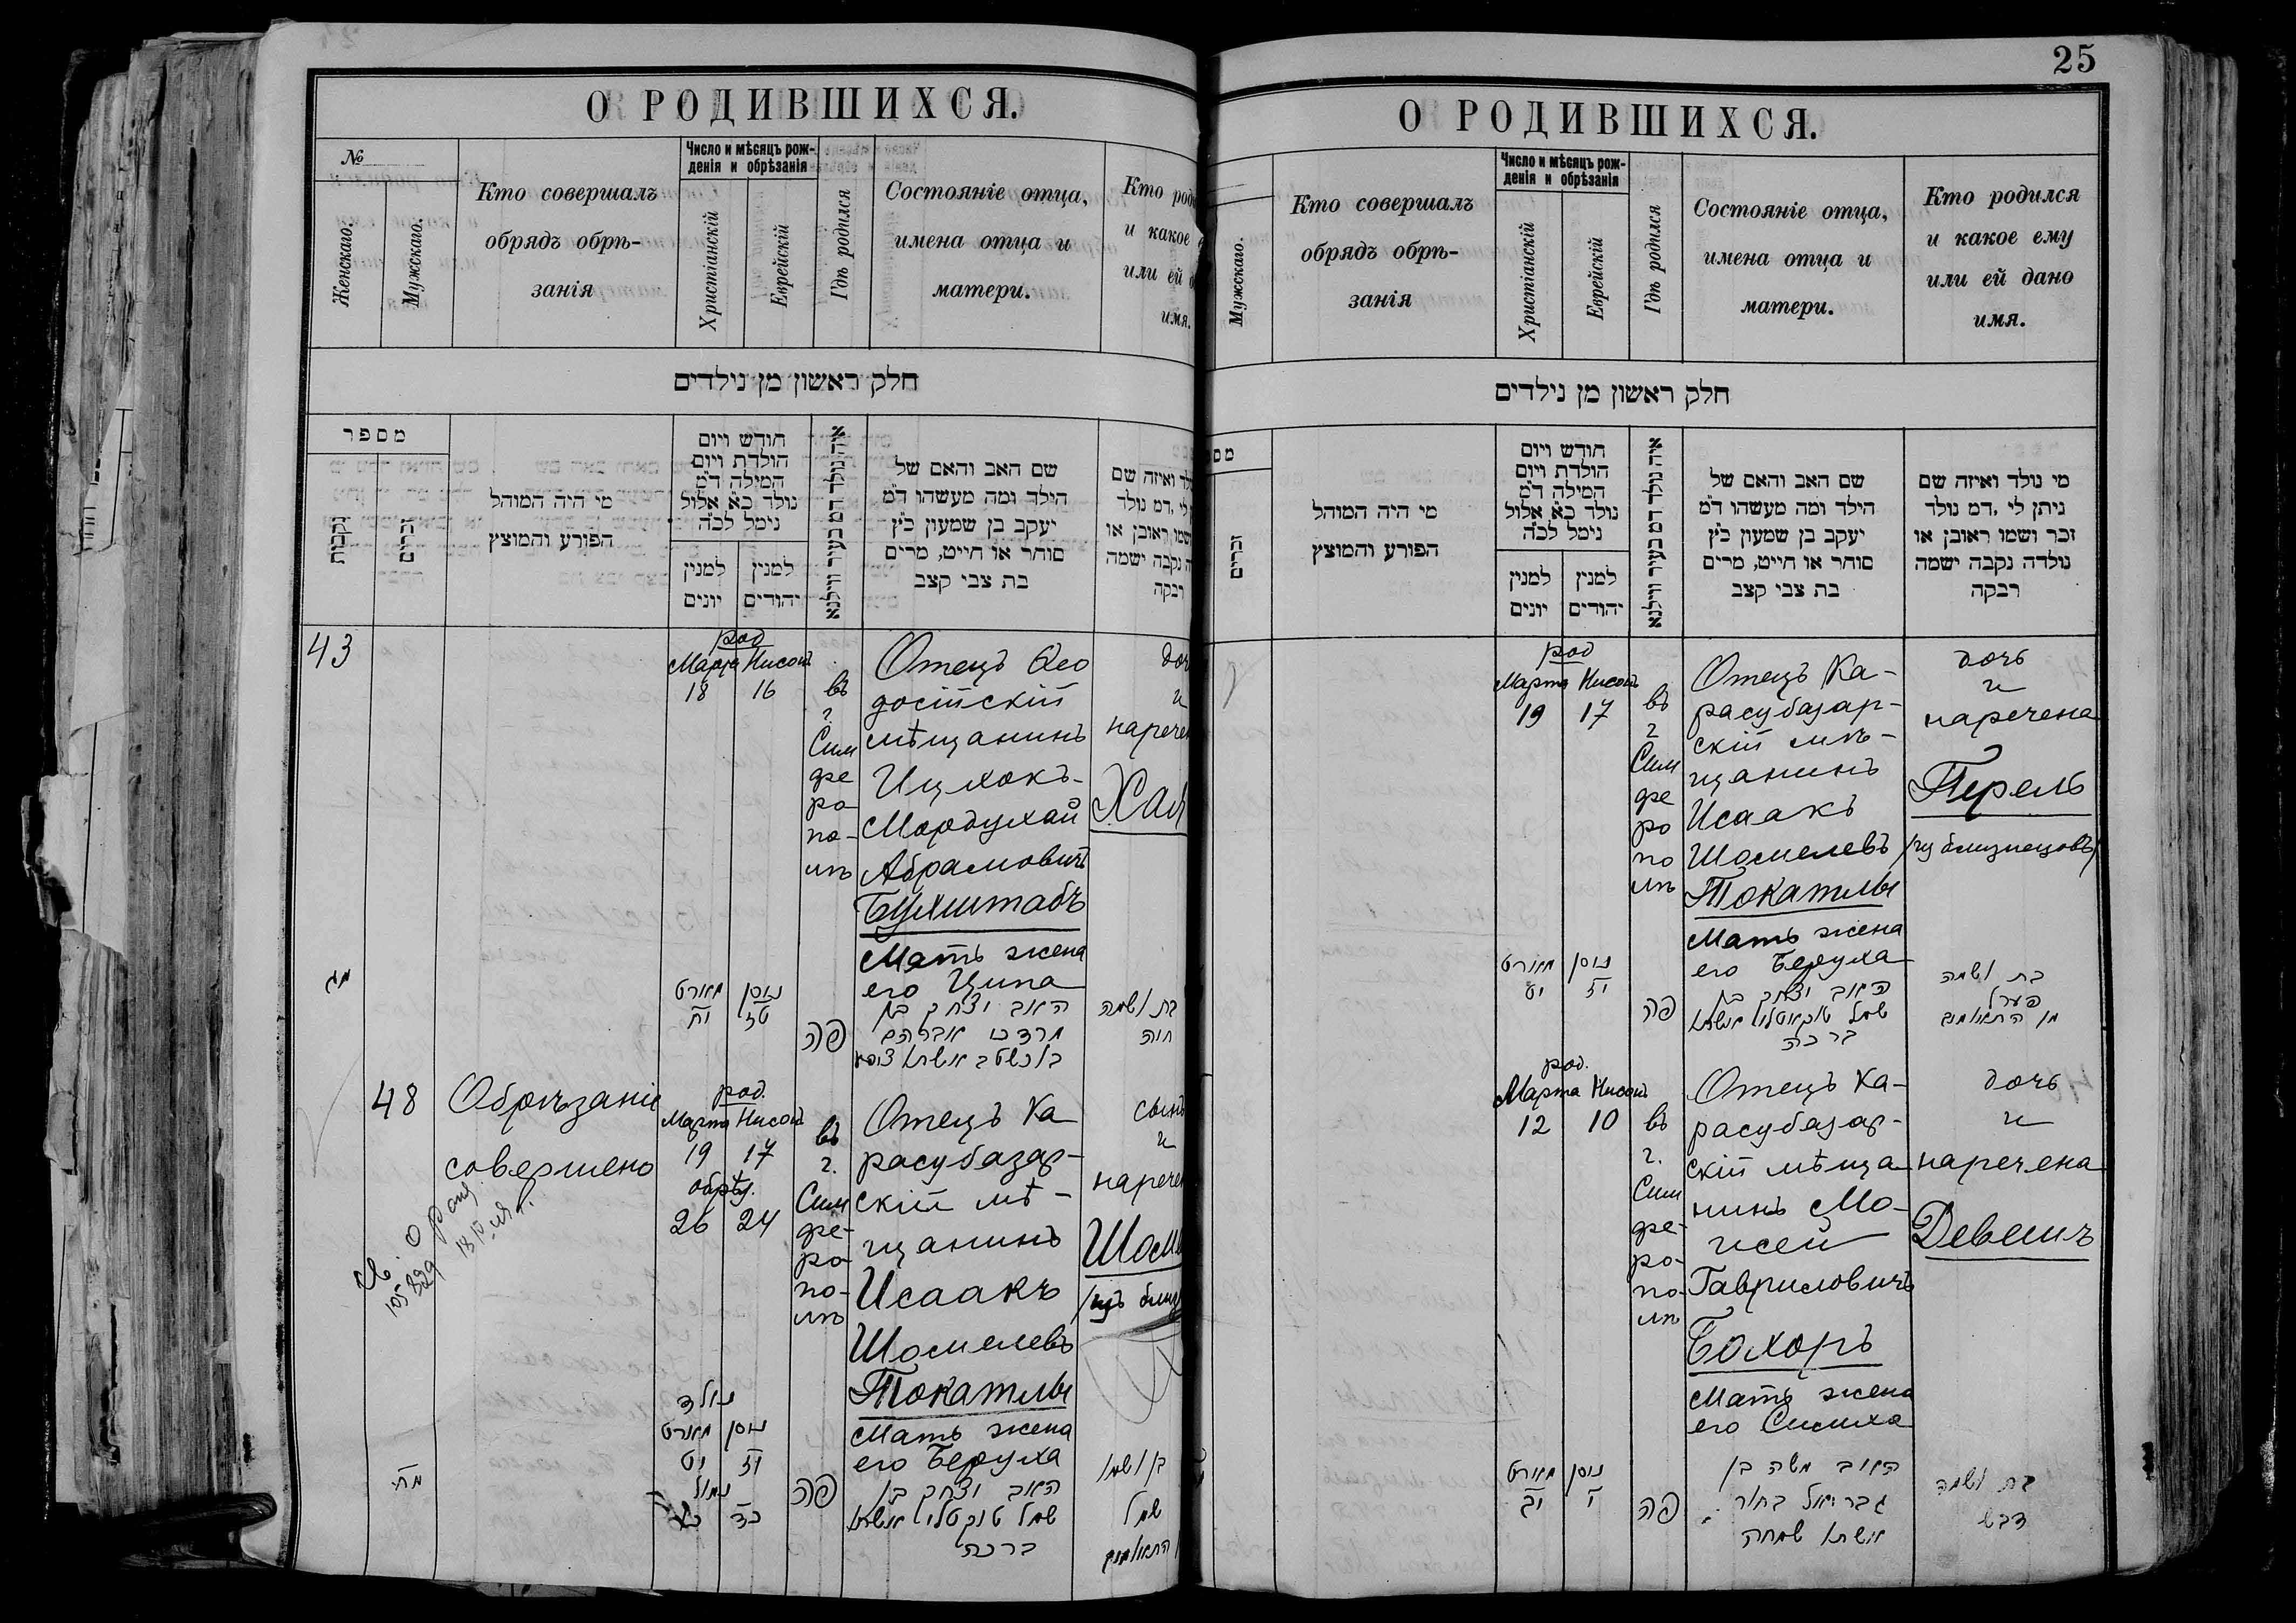 О РОДИВШИХСЯ.
№
Женскаго.
Мужскаго.
Кто совершалъ
обрядъ обрѣ-
занія
Число и мѣсяцъ рож-
денія и обрѣзанія
Христіанскій
Еврейскій
Гдѣ родился
Состояніе отца,
имена отца и
матери.
Кто род
и какое
или ей
имя.
חלק ראשון מן נילדים
מספר
נקבות
זכרים
מי היה המוהל
הפורע והמוצץ
חודש ויום
הולדת ויום
המילה ד״מ
נולד כ״א אלול
נימל לכ״ה
למנין
יונים
למנין
יהודים
איה נולד דמ בעיר ווילנא
שם האב והאם של
הילד ומה מעשהו ד״מ
יעקב בן שמעון כ״ץ
סוחר או חייט, מרים
בת צבי קצב
ואיזה שם
לי ,דמ נולד
ושמו ראובן או
נקבה ישמה
רבקה
43
род
Марта Нисонъ
18 16
въ
г.
Сим
фе
ро-
по-
лѣ
Отецъ Ѳео
досійскій
мѣщанинъ
Ицхокъ-
Мордухай
Абрамовичъ
Бухштабъ
Мать жена
его Ципа
доч
и
наречен
Хая
מג
מארט ניסן
יח טז
פה
האב יצחק בן
מרדכי אברהם
בוכשטב אשתו ציפע
בת ושמה
חוה
48
Обрѣзаніе
совершено
род.
Марта Нисонъ
19 17
обрѣз.
26 24
въ
г.
Сим
фе-
ро-
по-
лѣ
Отецъ Ка
расубазар-
скій мѣ-
щанинъ
Исаакъ
Шомелевъ
Токатлы
Мать жена
его Беруха
сынъ
и
наречен
Шом
/изъ близ
מח
נולד
מארט ניסן
יט יז
נימול
כד
פה
האב יצחק בן
שמל טוקטלי אשתו
ברכה
בן ושמו
שמל
התאומים
25
О РОДИВШИХСЯ.
Мужскаго.
Кто совершалъ
обрядъ обрѣ-
занія
Число и мѣсяцъ рож-
денія и обрѣзанія
Христіанскій
Еврейскій
Гдѣ родился
Состояніе отца,
имена отца и
матери.
Кто родился
и какое ему
или ей дано
имя.
חלק ראשון מן נילדים
מס
זכרים
מי היה המוהל
הפורע והמוצץ
חודש ויום
הולדת ויום
המילה ד״מ
נולד כ״א אלול
נימל לכ״ה
למנין
יונים
למנין
יהודים
איה נולד דמ בעיר ווילנא
שם האב והאם של
הילד ומה מעשהו ד״מ
יעקב בן שמעון כ״ץ
סוחר או חייט, מרים
בת צבי קצב
מי נולד ואיזה שם
ניתן לי ,דמ נולד
זכר ושמו ראובן או
נולדה נקבה ישמה
רבקה
род
Марта Нисонъ
19 17
въ
г
Сим
фе
ро
по
лѣ
Отецъ Ка-
расубазар-
скій мѣ-
щанинъ
Исаакъ
Шомелевъ
Токатлы
Мать жена
его Беруха
дочь
и
наречена
Перель
/изъ близнецовъ/
מארט ניסן
יט יז
פה
האב יצחק בן
שמל טוקאטלי אשתו
ברכה
בת ושמה
פערל
מן התאומים
род.
Марта Нисонъ
12 10
въ
г.
Сим
фе-
ро-
по-
лѣ
Отецъ Ка-
расубазар-
скій мѣща-
нинъ Мо-
исей
Гавриловичъ
Бохоръ
Мать жена
его Симиха
дочь
и
наречена
Девешъ
מארט ניסן
יב י
פה
האב משה בן
גבריאל בחור
אשתו שמחה
בת ושמה
דבש